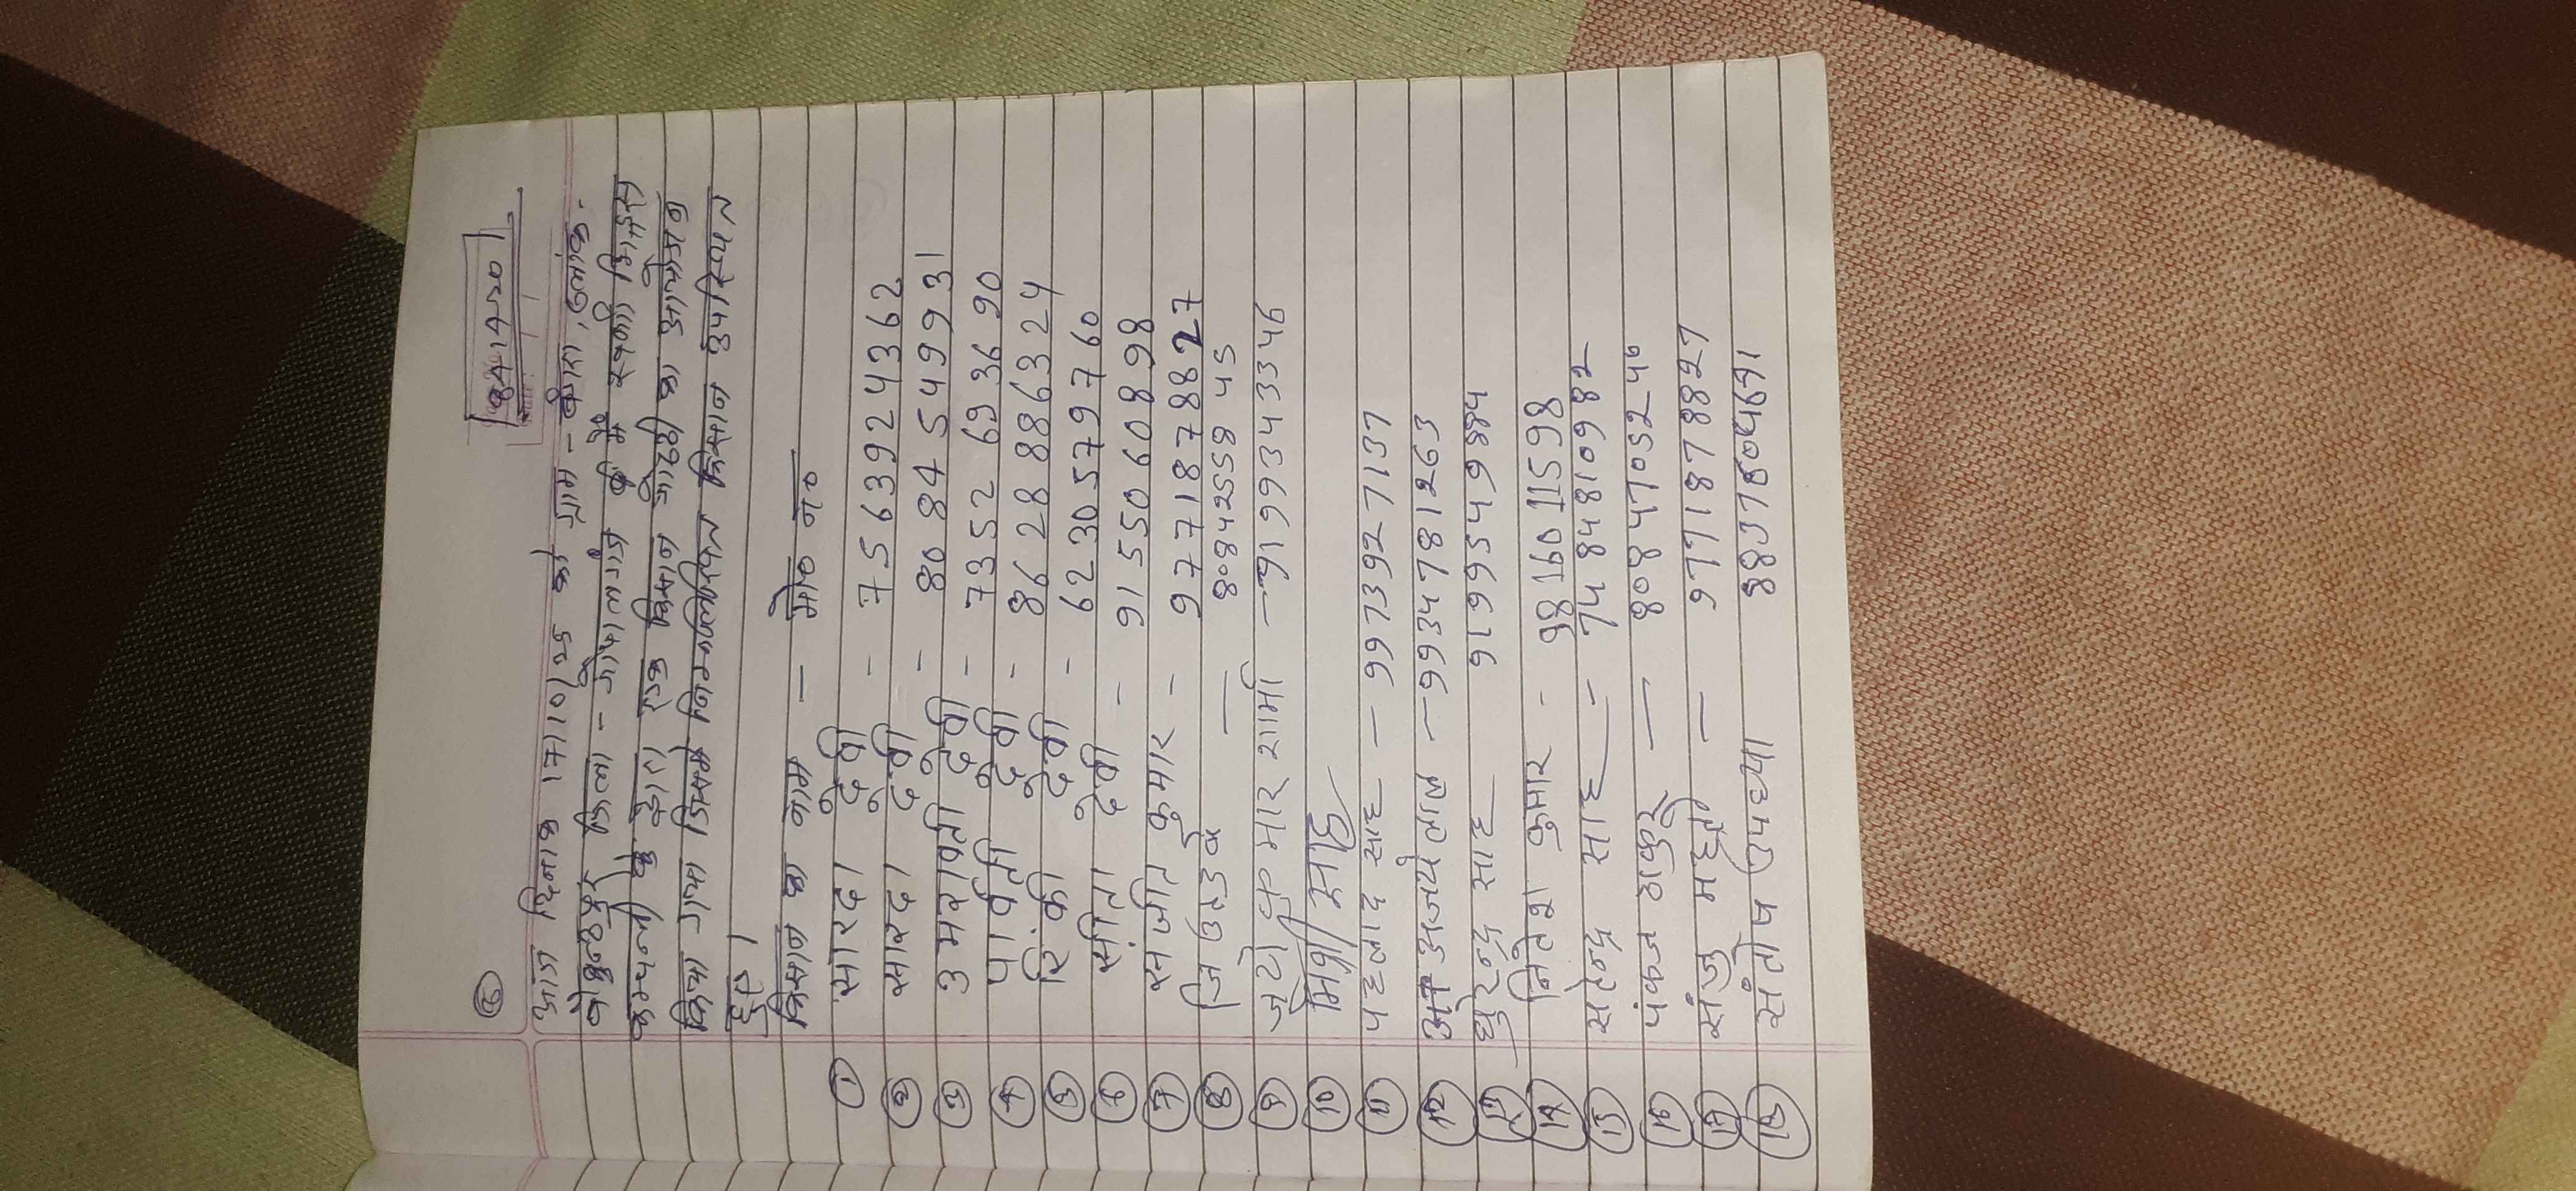 6
841420
आज दिनांक 17/10/25 को ग्राम - बंगरा, ब्लॉक -
बैकुन्ठपुर, जिला - गोपालगंज में
कम्पनी के द्वारा एक किसान गोष्ठी का आयोजन
किया गया जिसमे निम्नलिखित किसान उपस्थित
हुए।
किसान का नाम — मो० न०
① सारदा देवी - 7563924362
② सारदा देवी - 8084549931
③ उमरावती देवी - 7352693690
④ पार्वती देवी - 8628886324
⑤ रिंकी देवी - 6230579760
⑥ सीता देवी - 9155060898
⑦ संजीत कुमार - 9771878827
⑧ — 8084255845
⑨ कुमार शर्मा — 9199343346
⑩ मिश्री साह
⑪ पहलाद साह — 9973927137
⑫ अजय लाल — 9934781263
⑬ साह — 9199549884
⑭ नितेश कुमार - 9816011598
⑮ सरेन्द्र साह - 7484810982
⑯ पंकज ठाकुर — 8084705246
⑰ संजु महतो — 9771878827
⑱ संतोष उपध्या 8837804691